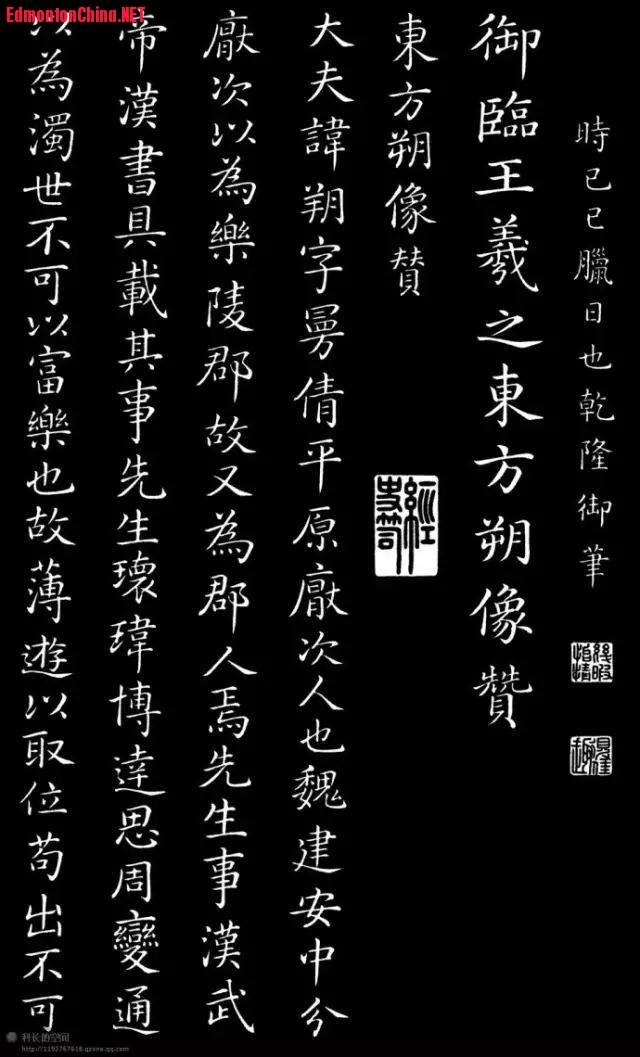 EdmontonChina.NET
時己巳臘日也乾隆御筆
御臨王羲之東方朔像贊
東方朔像贊
大夫諱朔字曼倩平原厭次人也魏建安中分
厭次以為樂陵郡故又為郡人焉先生事漢武
帝漢書具載其事先生瓌瑋博達思周變通
以為濁世不可以富樂也故薄遊以取位苟出不可
科长的空间
http://1193767618.qzone.qq.com